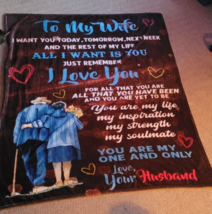 To My Wife
I WANT YOU TODAY, TOMORROW, NEXT WEEK
AND THE REST OF MY LIFE
ALL I WANT IS YOU
JUST REMEMBER
I Love You
FOR ALL THAT YOU ARE
ALL THAT YOU HAVE BEEN
AND YOU ARE YET TO BE
You are my life
my inspiration
my strength
my soulmate
YOU ARE MY
ONE AND ONLY
Love,
Your Husband